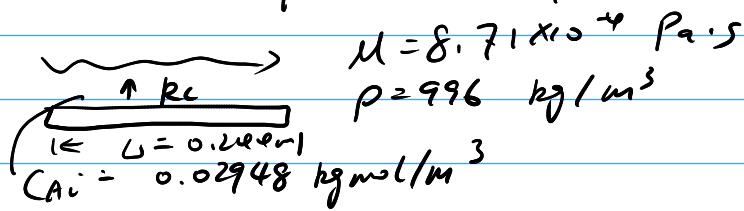 μ = 8.71×10⁻⁴ Pa·s
↑ kc
ρ = 996 kg/m³
L = 0.244 m
C_Ai = 0.02948 kg mol/m³